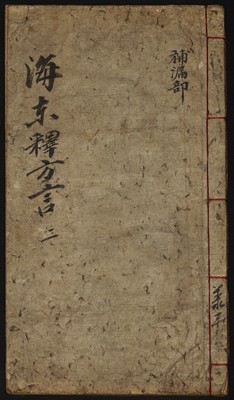 補漏部
海東釋方言 二